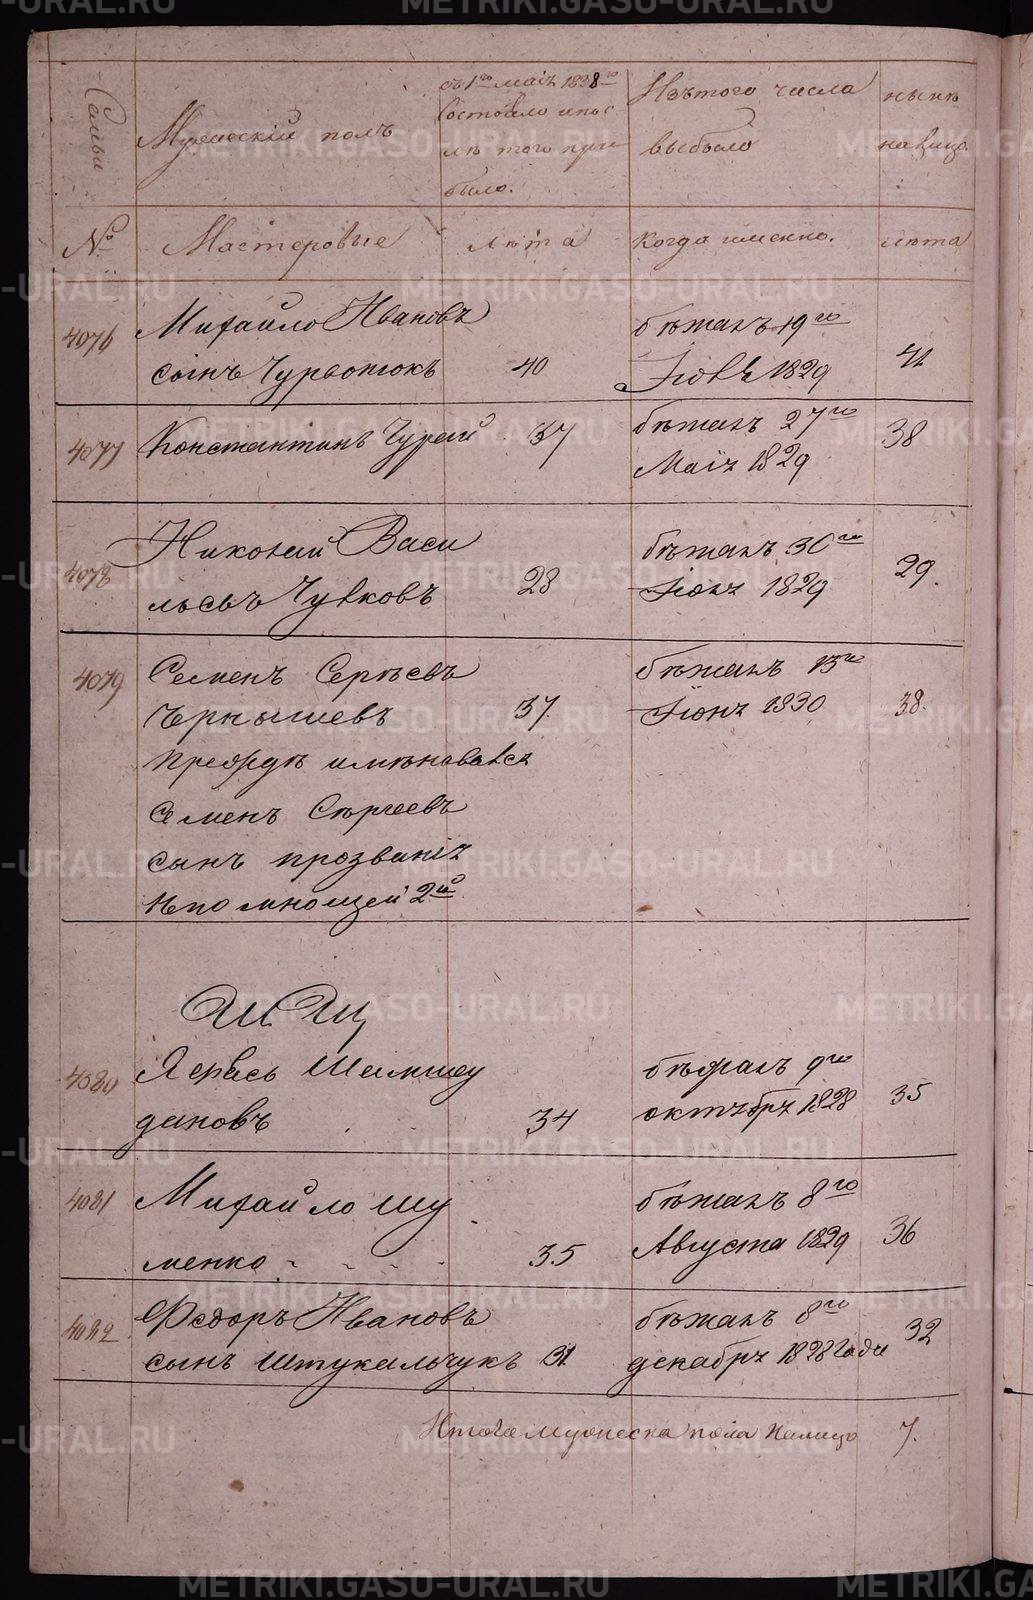 METRIKI.GASO-URAL.RU
Семьи
Мужескій полъ
съ 1го маія 1828го
Состояло и пос
лѣ того при
было.
Изъ того числа
выбыло
нынѣ
на лицо.
№
Мастеровые
лѣта
когда именно.
лѣта
4076
Михайло Ивановъ
сынъ Чурвотокъ
40
бѣжалъ 19го
Іюля 1829
41
4077
Константинъ Чурай
37
бѣжалъ 27го
Маія 1829
38
4078
Николай Васи
льевъ Чувковъ
28
бѣжалъ 30го
Іюня 1829
29.
4079
Семенъ Сергѣевъ
Чернышевъ
37.
бѣжалъ 15го
Іюня 1830
38.
Прежде именовался
Семенъ Сергеевъ
сынъ прозванія
Непомнющей 2й
Ш. Щ
4080
Шемшеу
дановъ
34
бѣжалъ 9го
октября 1828
35
4081
Михайло Шу
менко
35
бѣжалъ 8го
Августа 1829
36
4082
Федоръ Ивановъ
сынъ Штукальчукъ
31
бѣжалъ 8го
декабря 1828 года
32
Итого мужеска пола налицо
7.